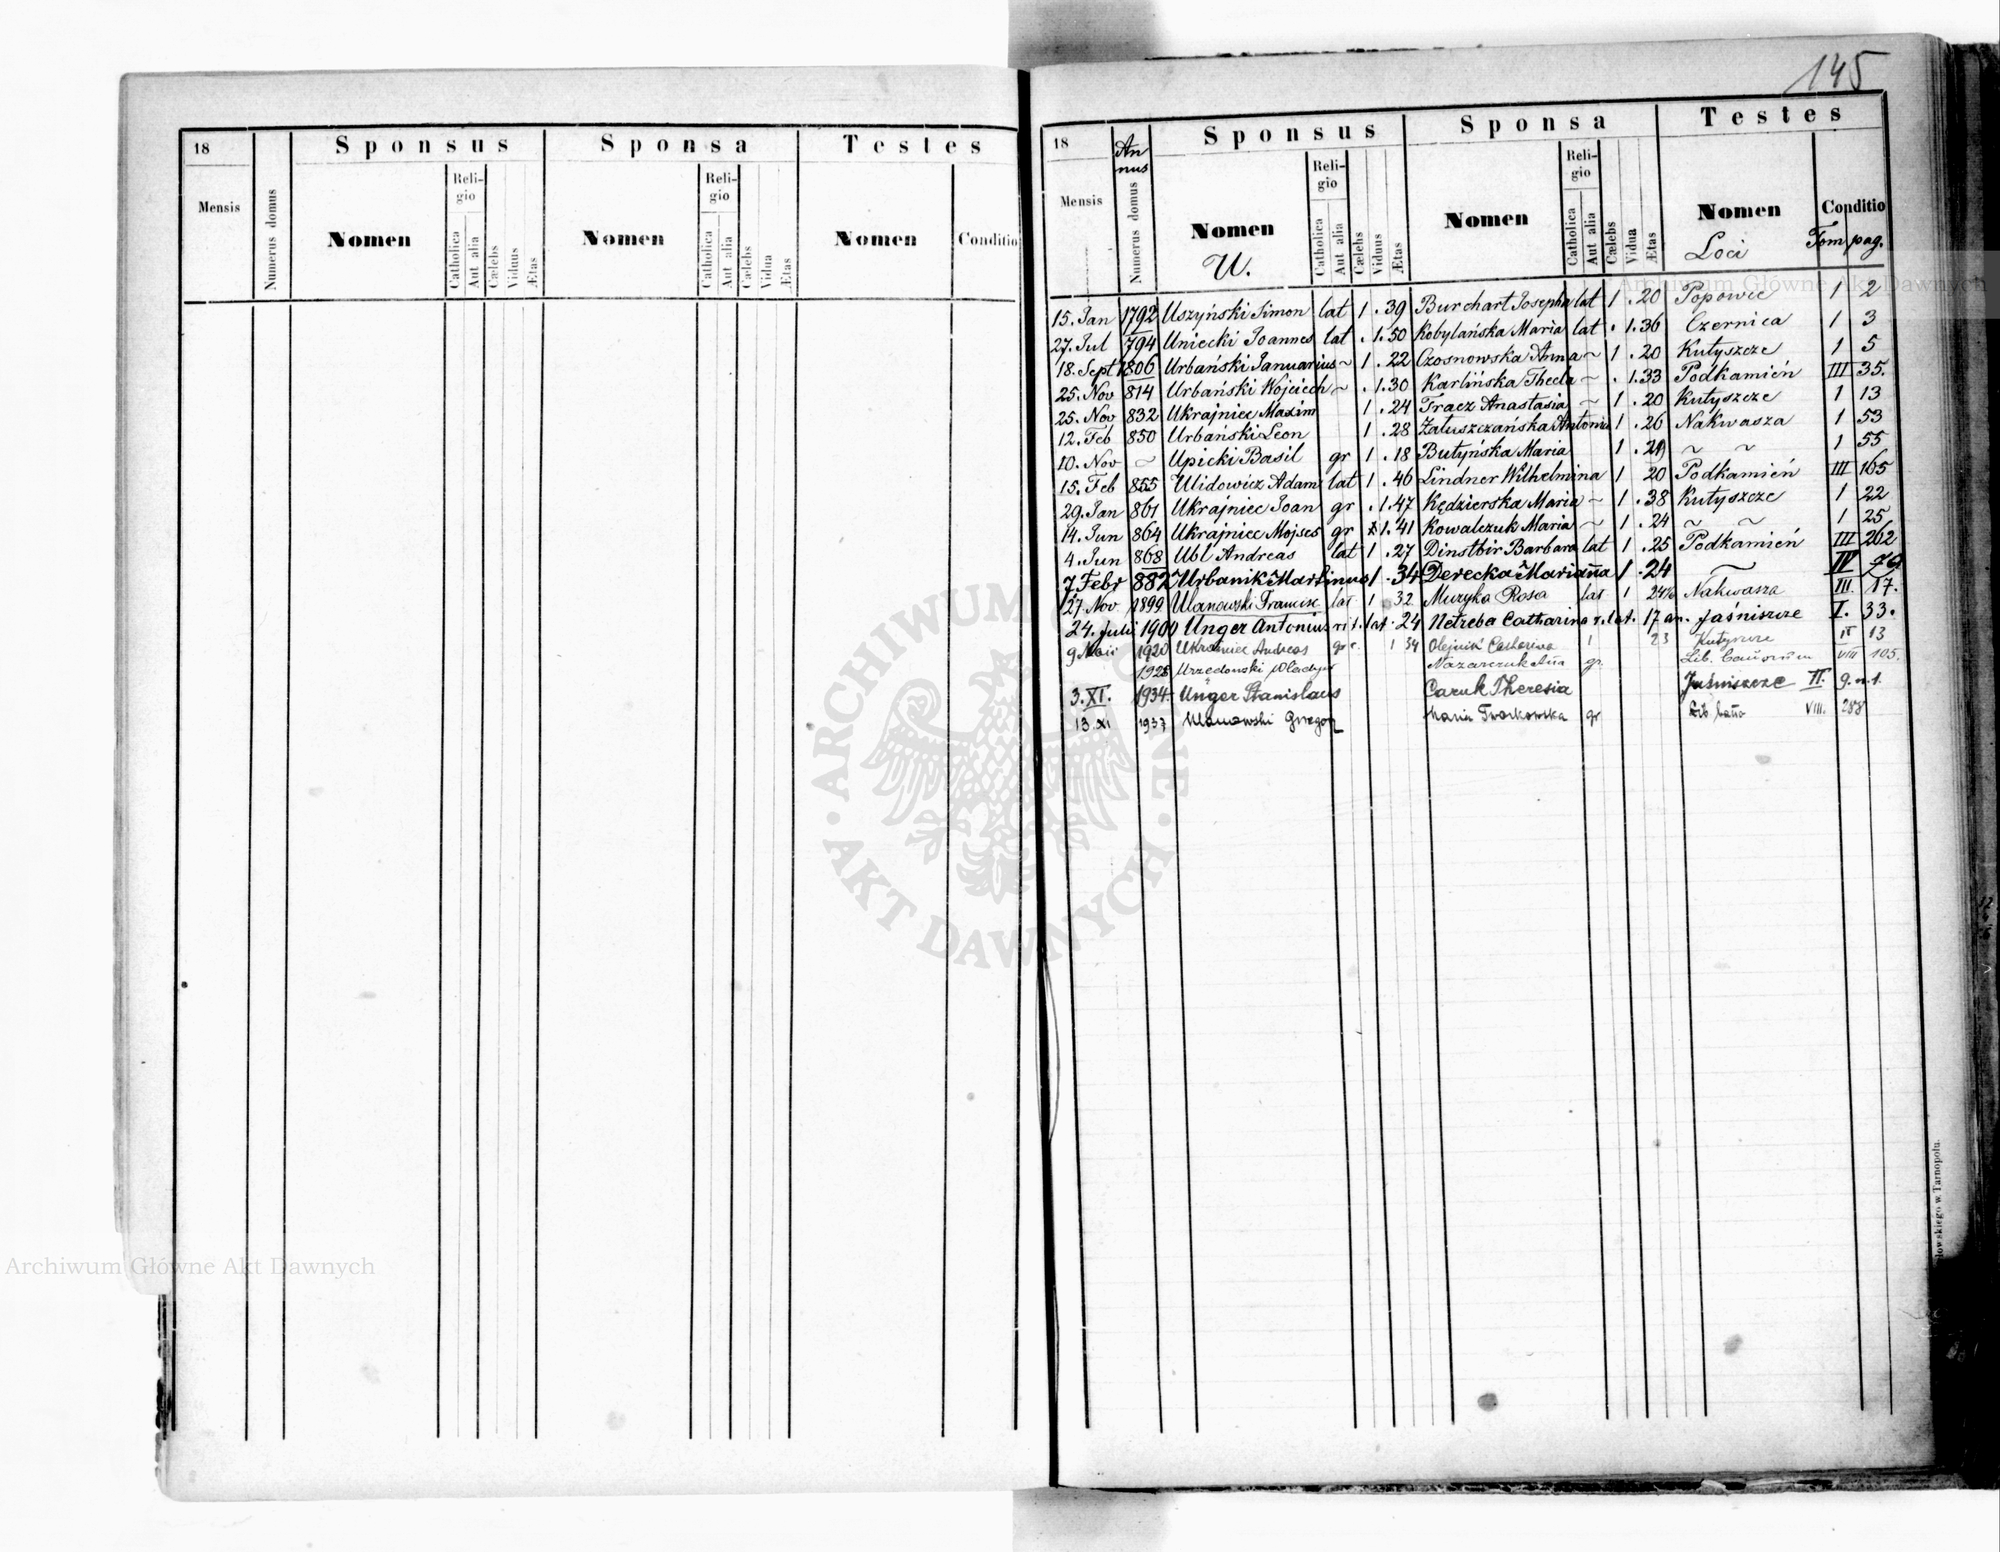 145
18
Sponsus
Sponsa
Testes
Mensis
Numerus domus
Nomen
Religio
Catholica
Aut alia
Cælebs
Viduus
Ætas
Nomen
Religio
Catholica
Aut alia
Cælebs
Vidua
Ætas
Nomen
Conditio
18
Annus
Sponsus
Sponsa
Testes
Mensis
Numerus domus
Nomen
U.
Religio
Catholica
Aut alia
Cælebs
Viduus
Ætas
Nomen
Religio
Catholica
Aut alia
Cælebs
Vidua
Ætas
Nomen
Loci
Conditio
Tom pag.
15. Jan 1792 Uszyński Simon lat 1 . 39 Burchart Josepha lat 1 . 20 Popowce 1 2
27. Jul 794 Uniecki Joannes lat . 1. 50 Kobylańska Maria lat . 1. 36 Czernica 1 3
18. Sept 1806 Urbański Januarius ~ 1 . 22 Czosnowska Anna ~ 1 . 20 Kutyszcze 1 5
25. Nov 814 Urbański Wojciech ~ . 1. 30 Karlińska Thecla ~ . 1. 33 Podkamień III 35.
25. Nov 832 Ukrajniec Maxim 1 . 24 Tracz Anastasia ~ 1 . 20 Kutyszcze 1 13
12. Feb 850 Urbański Leon 1 . 28 Załuszczańska Antonia 1 . 26 Nakwasza 1 53
10. Nov ~ Upicki Basil gr 1 . 18 Butyńska Maria 1 . ~ ~ 1 55
15. Feb 855 Ulidowicz Adam lat 1 . 46 Lindner Wilhelmina 1 20 Podkamień III 165
29. Jan 861 Ukrajniec Joan gr . 1. 47 Kędzierska Maria ~ 1 . 38 Kutyszcze 1 22
14. Jun 864 Ukrajniec Mojses gr 1. 41 Kowalczuk Maria ~ 1 . 24 ~ ~ 1 25
4. Jun 868 Ubl Andreas lat 1 . 27 Dinstbir Barbara lat 1 . 25 Podkamień III 262
7 Febr 882 Urbanik Martinus 1 . 34 Derecka Marianna 1 . 24 ~ IV 76
27. Nov. 1899 Ulanowski Francisc lat 1 32 Muzyka Rosa lat 1 Nakwasza III. 17.
24. Julii 1900 Unger Antonius rit. lat. 24 Netreba Catharina r. lat. 17 an. Jaśniszcze I. 33.
9 Maii 1920 Ukrainiec Andreas gr c. 1 34 Olejnik Catharina 1 23 Kutyszcze II 13
1928 Nazarczuk Anna gr. Lib. VIII 105.
3. XI. 1934. Unger Stanislaus Caruk Theresia Jaśniszcze II. 9. n. 1.
13. XI 1937 Ulanowski Grzegorz Maria Tworkowska gr Lib VIII. 288
Archiwum Główne Akt Dawnych
Archiwum Główne Akt Dawnych
ARCHIWUM GŁÓWNE · AKT DAWNYCH ·
w Tarnopolu.